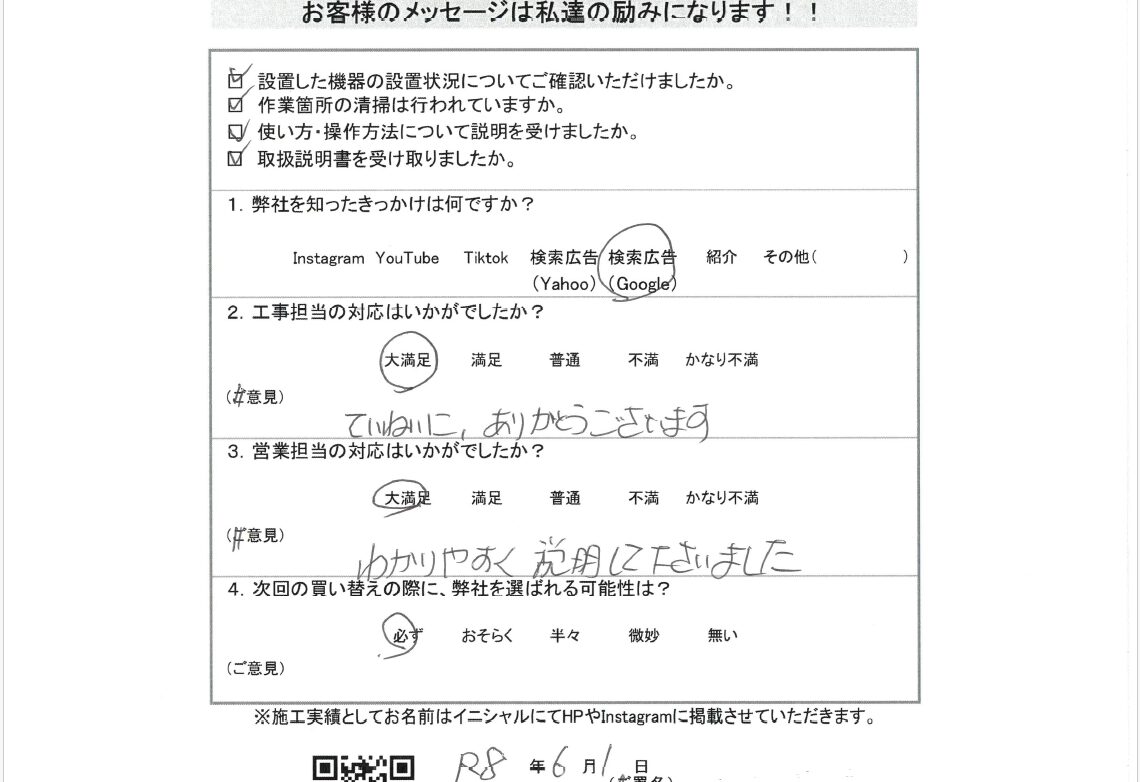 お客様のメッセージは私達の励みになります！！
設置した機器の設置状況についてご確認いただけましたか。
作業箇所の清掃は行われていますか。
使い方・操作方法について説明を受けましたか。
取扱説明書を受け取りましたか。
1. 弊社を知ったきっかけは何ですか？
Instagram YouTube Tiktok 検索広告 検索広告 紹介 その他( )
(Yahoo) (Google)
2. 工事担当の対応はいかがでしたか？
大満足 満足 普通 不満 かなり不満
(ご意見)
ていねいに，ありがとうございます
3. 営業担当の対応はいかがでしたか？
大満足 満足 普通 不満 かなり不満
(ご意見)
わかりやすく 説明して下さいました
4. 次回の買い替えの際に、弊社を選ばれる可能性は？
必ず おそらく 半々 微妙 無い
(ご意見)
※施工実績としてお名前はイニシャルにてHPやInstagramに掲載させていただきます。
R8 年 6 月 1 日